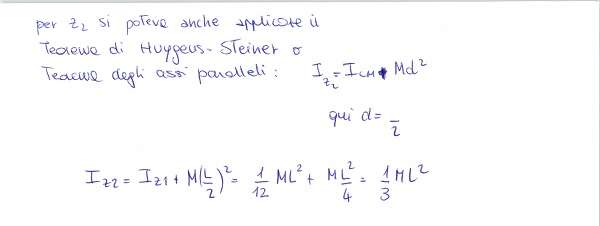 per z₂ si poteva anche applicare il
Teorema di Huygens-Steiner o
Teorema degli assi paralleli : I_z₂ = I_CM + Md²
qui d = _/2
I_z2 = I_z1 + M(L/2)² = 1/12 ML² + ML²/4 = 1/3 ML²